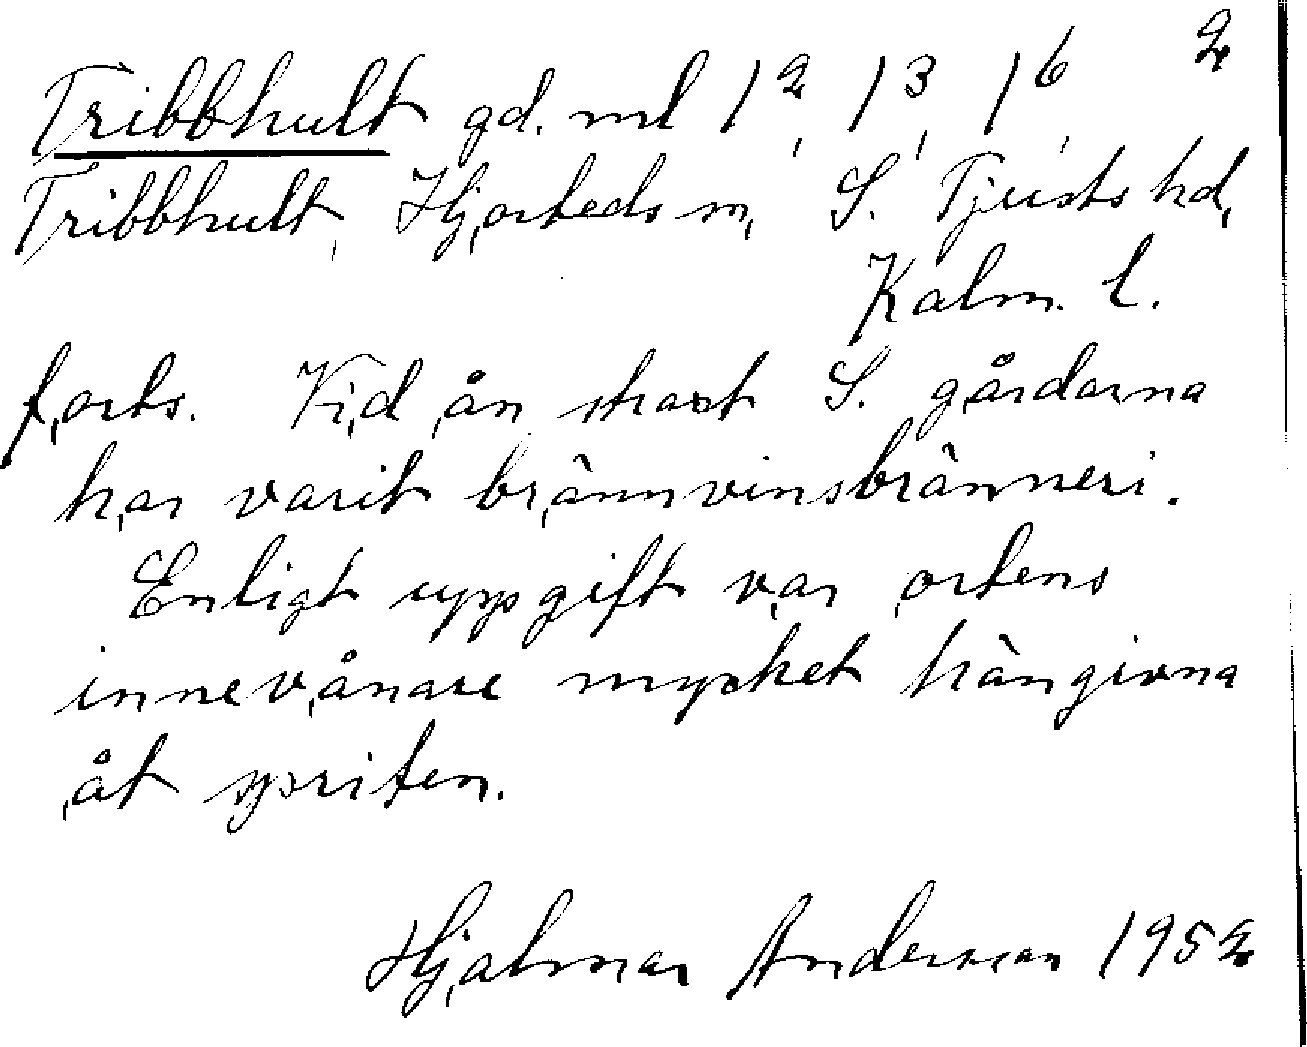 Tribbhult gd. ml 1², 1³, 1⁶ 2
Tribbhult, Hjorteds sn, S. Tjusts hd,
Kalm. l.
forts. Vid ån strax S. gårdarna
har varit brännvinsbränneri.
Enligt uppgift var ortens
innevånare mycket hängivna
åt spriten.
Hjalmar Anderson 1952